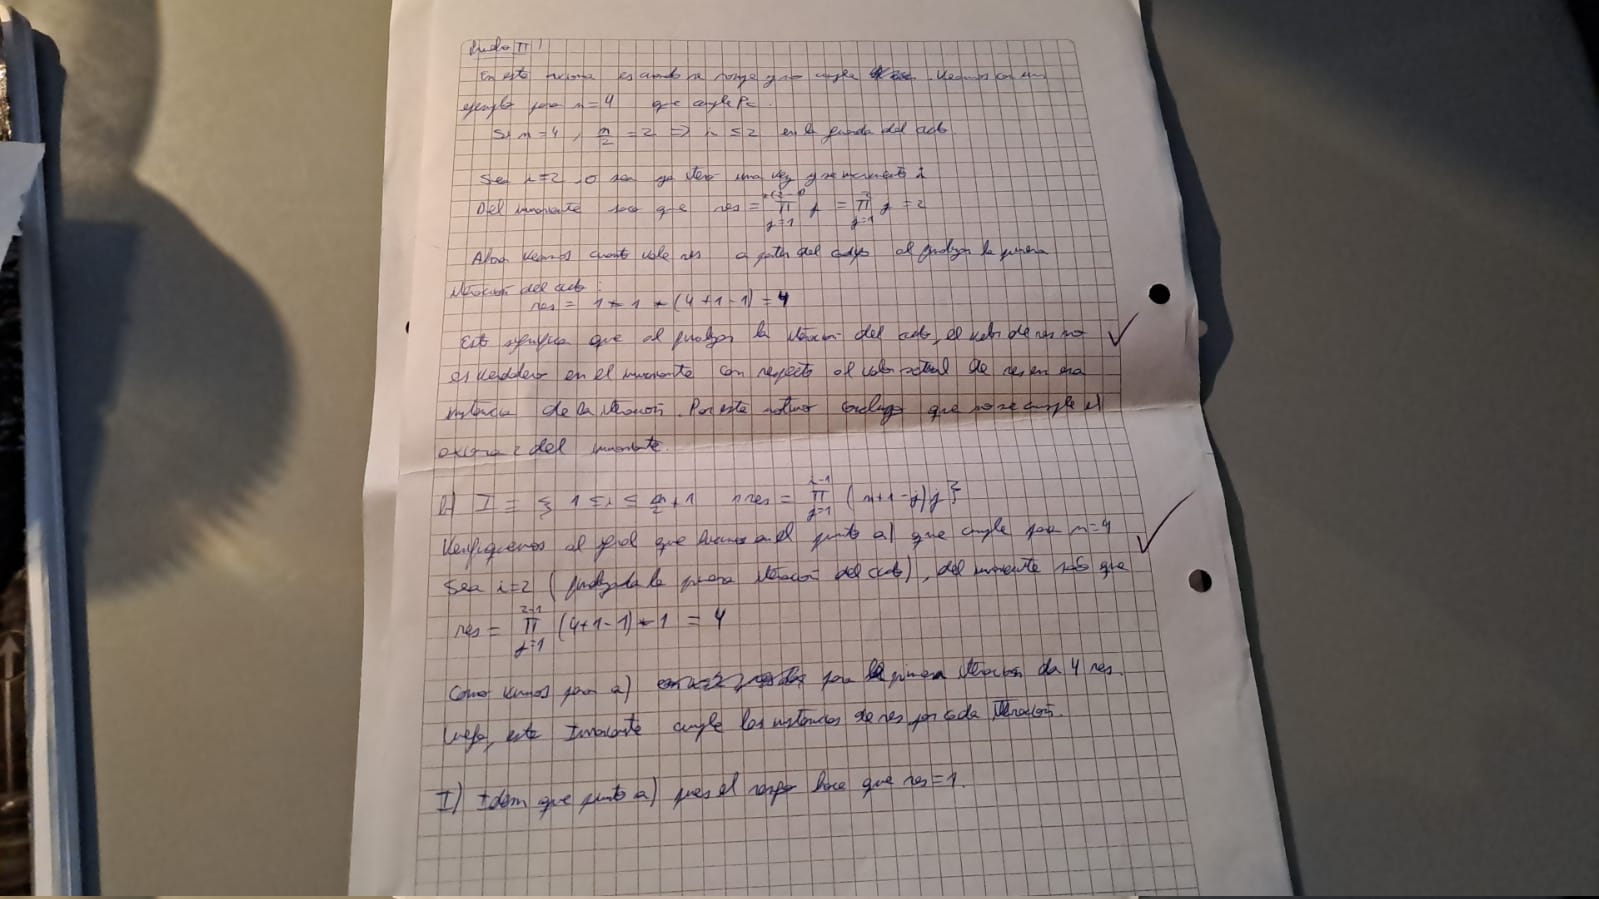 Punto II)
En este axioma es cuando se rompe y no cumple. Veamos con un
ejemplo para n=4 que cumple Pc.
Si n=4, n/2 = 2 => i ≤ 2 en la guarda del ciclo
Sea i=2, o sea ya itero una vez y se incremento i
Del invariante saco que res = ∏ j=1 j = ∏ j=1 j = 2
Ahora veamos cuanto vale res a partir del codigo al finalizar la primera
iteración del ciclo:
res = 1 * 1 * (4+1-1) = 4
Esto significa que al finalizar la iteración del ciclo, el valor de res no
es verdadero en el invariante con respecto al valor actual de res en esa
instancia de la iteración. Por este motivo concluyo que no se cumple el
axioma 2 del invariante.
b) I ≡ { 1 ≤ i ≤ n/2 + 1 ∧ res = ∏ j=1 i-1 (n+1-j)j }
Verifiquemos al igual que hicimos en el punto a) que cumple para n=4
Sea i=2 (finalizada la primera iteración del ciclo), del invariante sale que
res = ∏ j=1 2-1 (4+1-1)*1 = 4
Como vimos para a) para la primera iteración da 4 res.
Luego, este Invariante cumple las instancias de res por cada iteración.
I) Idem que punto a) pues el rango hace que res=1.